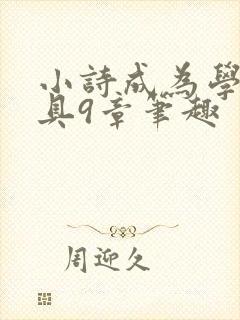 小詩成為學
具9章筆趣
周迎久